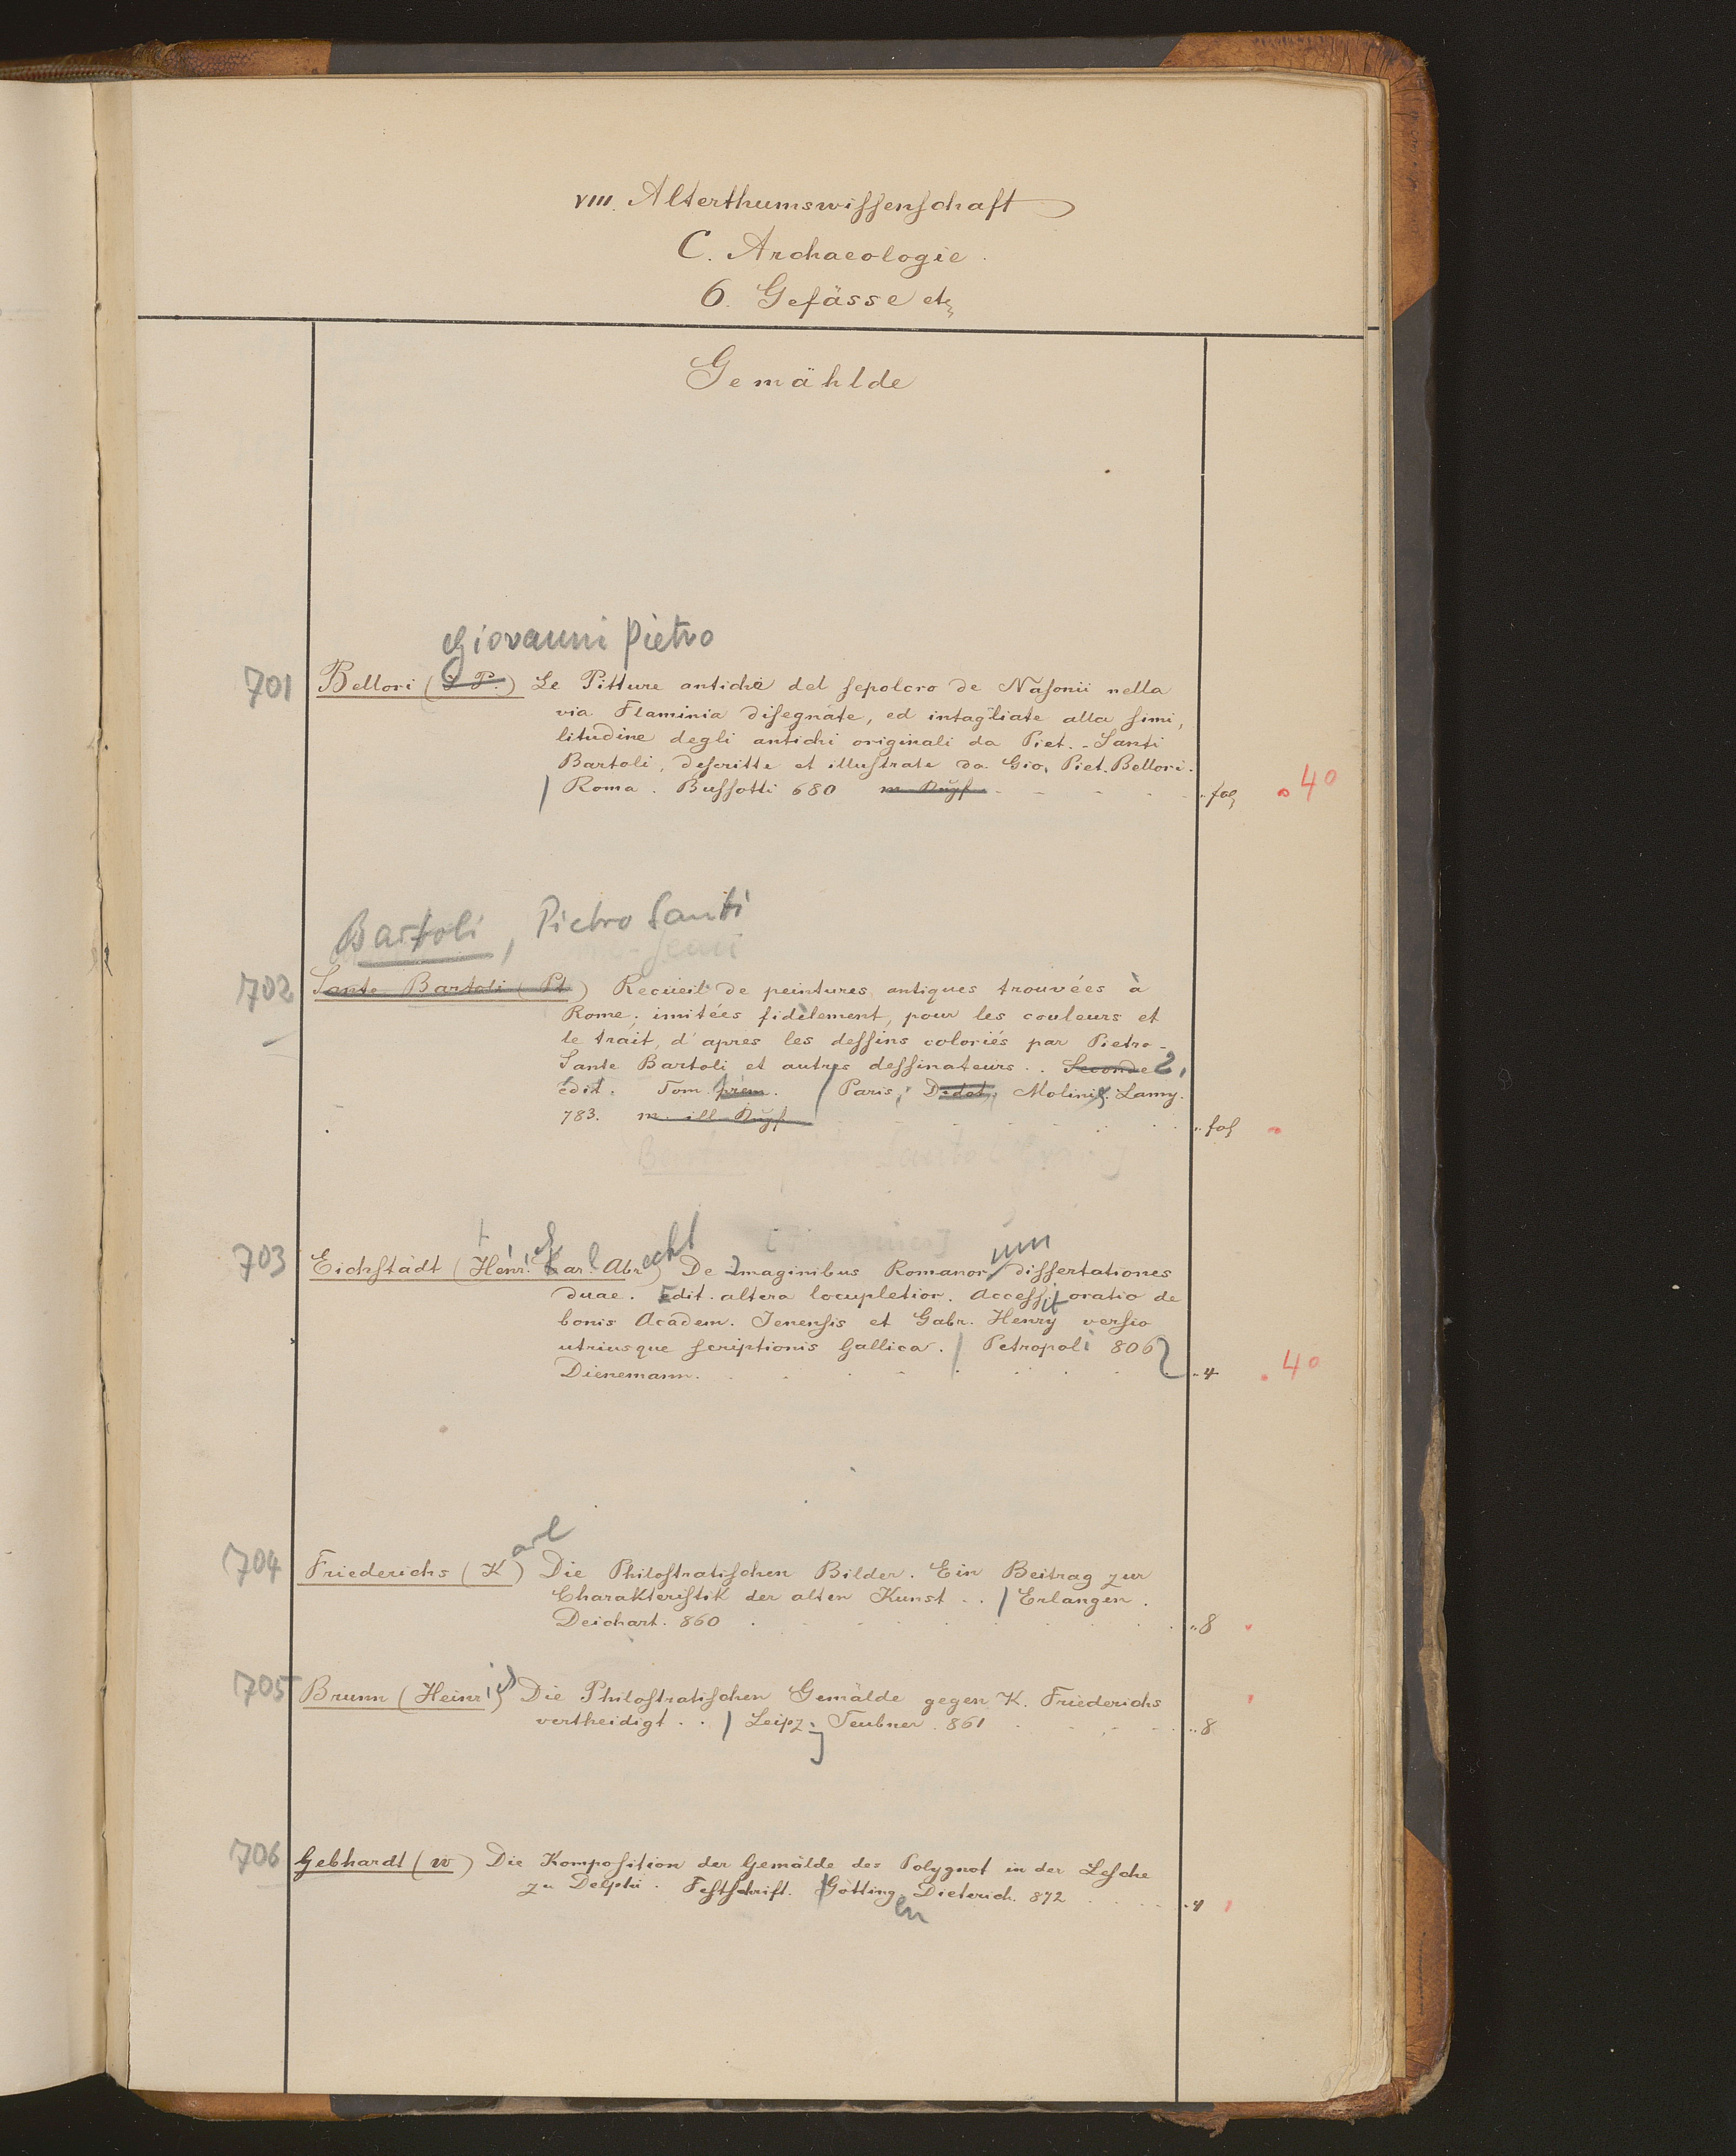 VIII. Alterthumswissenschaft
C. Archaeologie.
6. Gefässe etc
Gemählde
Giovanni Pietro
701 Bellori (J P.) Le Pitture antiche del sepolcro de Nasonii nella
via Flaminia disegnate, ed intagliate alla simi,
litudine degli antichi originali da Piet.-Santi
Bartoli, descritte et illustrate da Gio. Piet. Bellori.
/ Roma. Bussotti 680 m Kupf fol 40
Bartoli, Pietro Santi
702 Sante Bartoli (Pt) Recueil de peintures antiques trouvées à
Rome; imitées fidèlement, pour les couleurs et
le trait, d'apres les dessins coloriés par Pietro-
Sante Bartoli et autres dessinateurs.. Seconde 2.
édit. Tom. prem. / Paris, Didot, Molini, Lamy.
783. m. ill. Kupf fol
703 Eichstädt (Heinrich Karl Abrecht) De Imaginibus Romanorum dissertationes
duae. Edit. altera locupletior. Accessit oratio de
bonis Academ. Jenensis et Gabr. Henry versio
utriusque scriptionis Gallica. / Petropoli 806
Dienemann. 4 40
704 Friederichs (Karl) Die Philostratischen Bilder. Ein Beitrag zur
Charakteristik der alten Kunst.. / Erlangen.
Deichart. 860 8
705 Brunn (Heinrich) Die Philostratischen Gemälde gegen K. Friederichs
vertheidigt.. / Leipzig Teubner. 861 8
706 Gebhardt (W) Die Komposition der Gemälde des Polygnot in der Lesche
zu Delphi. Festschrift. / Göttingen Dieterich. 872 4